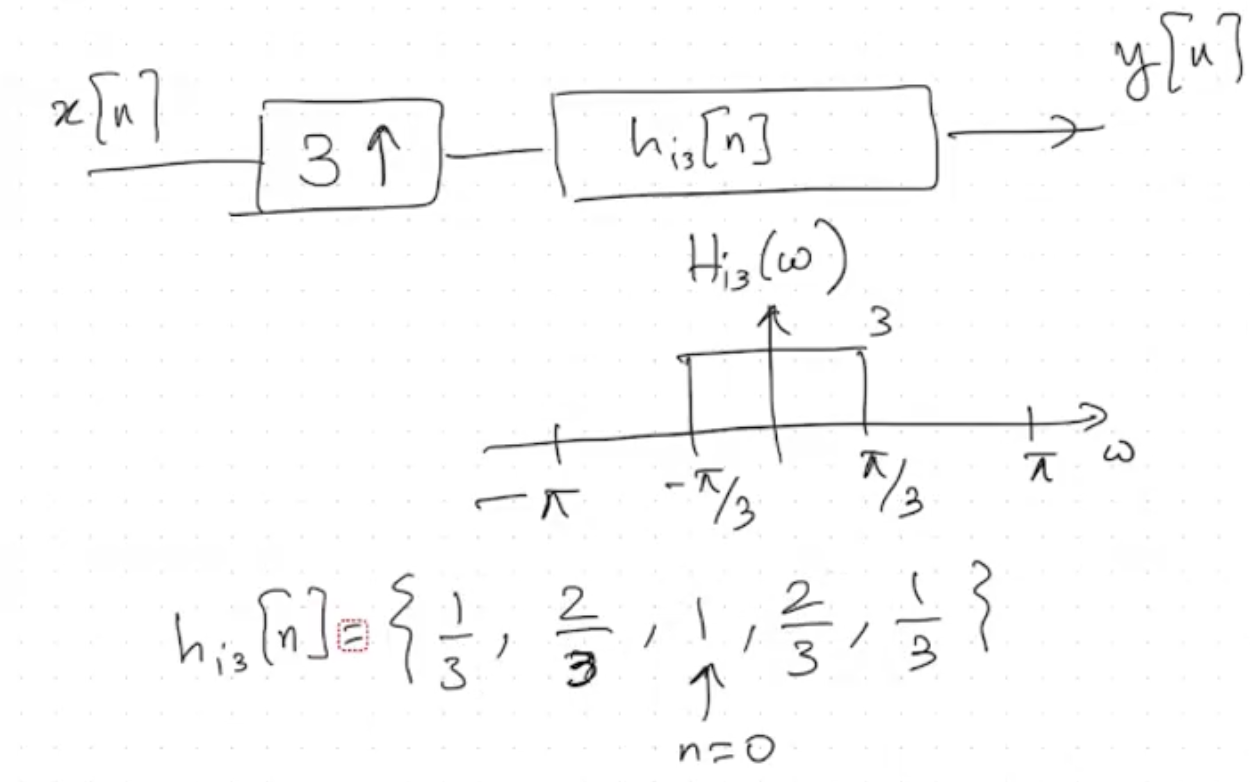 x[n] 3↑ h_{i3}[n] y[n]
H_{i3}(ω)
3
-π -π/3 π/3 π ω
h_{i3}[n] = { 1/3, 2/3, 1, 2/3, 1/3 }
↑
n=0